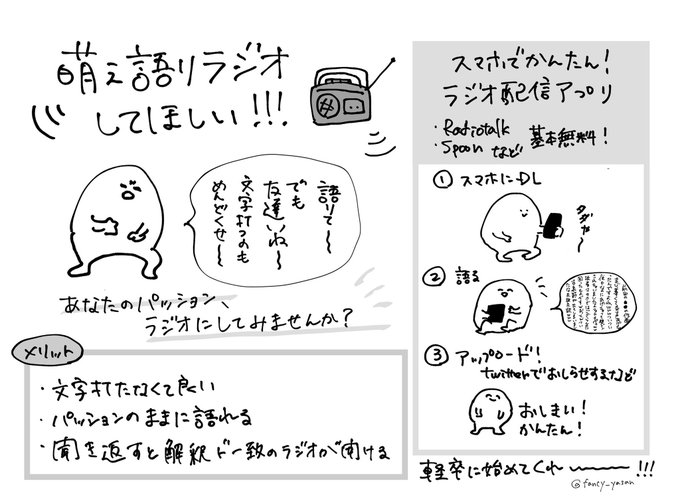 萌え語りラジオ
してほしい!!!
語りて〜〜
でも
友達いね〜
文字打つのも
めんどくせ〜〜
あなたのパッション、
ラジオにしてみませんか?
メリット
・文字打たなくて良い
・パッションのままに語れる
・聞き返すと解釈ド一致のラジオが聞ける
スマホでかんたん!
ラジオ配信アプリ
・Radiotalk
・Spoon など
基本無料!
① スマホにDL
タダだ〜
② 語る
③ アップロード!
twitterでおしらせするなど
おしまい!
かんたん!
軽率に始めてくれ〜〜!!!
@fancy_yasan